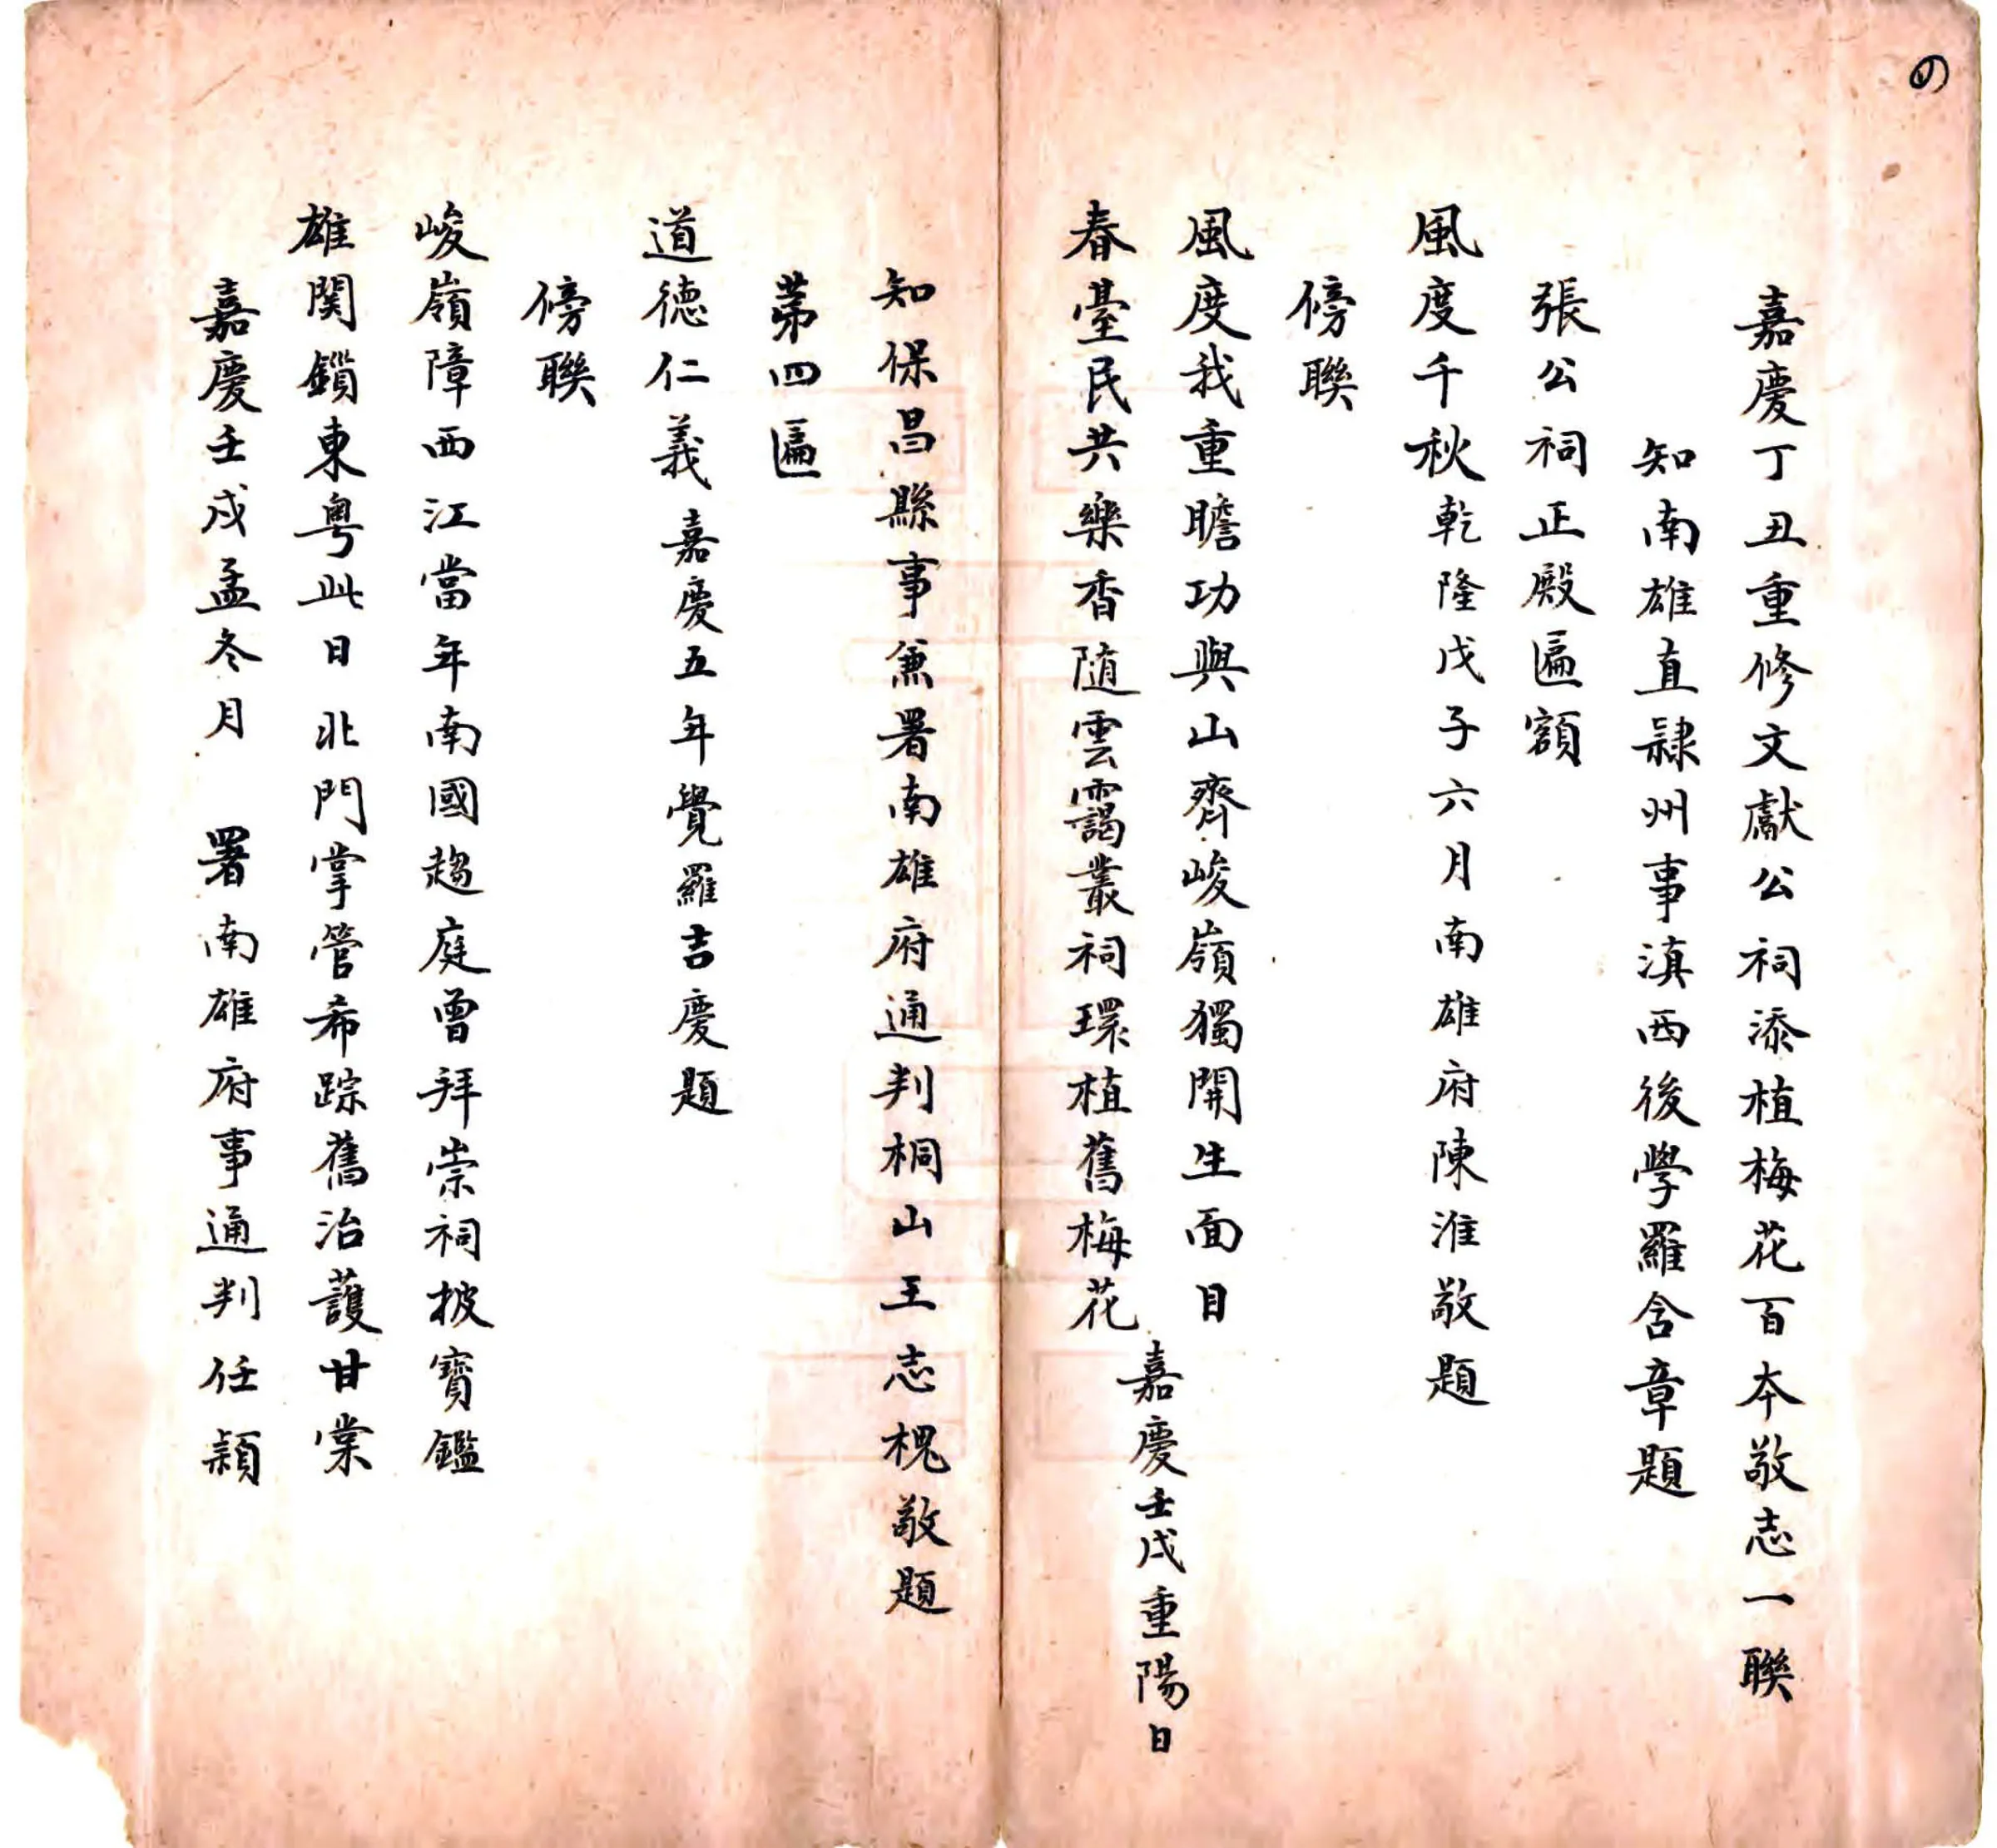 嘉慶丁丑重修文獻公祠添植梅花百本敬志一聯
知南雄直隸州事滇西後學羅含章題
張公祠正殿匾額
風度千秋乾隆戊子六月南雄府陳淮敬題
傍聯
風度我重瞻功與山齊峻嶺獨開生面目
春臺民共樂香隨雲靄叢祠環植舊梅花
嘉慶壬戌重陽日
知保昌縣事兼署南雄府通判桐山王志槐敬題
苐四匾
道德仁義嘉慶五年覺羅吉慶題
傍聯
峻嶺障西江當年南國趨庭曾拜崇祠披寶鑑
雄関鎖東粵此日北門掌管希踪舊治護甘棠
嘉慶壬戌孟冬月 署南雄府事通判任頴